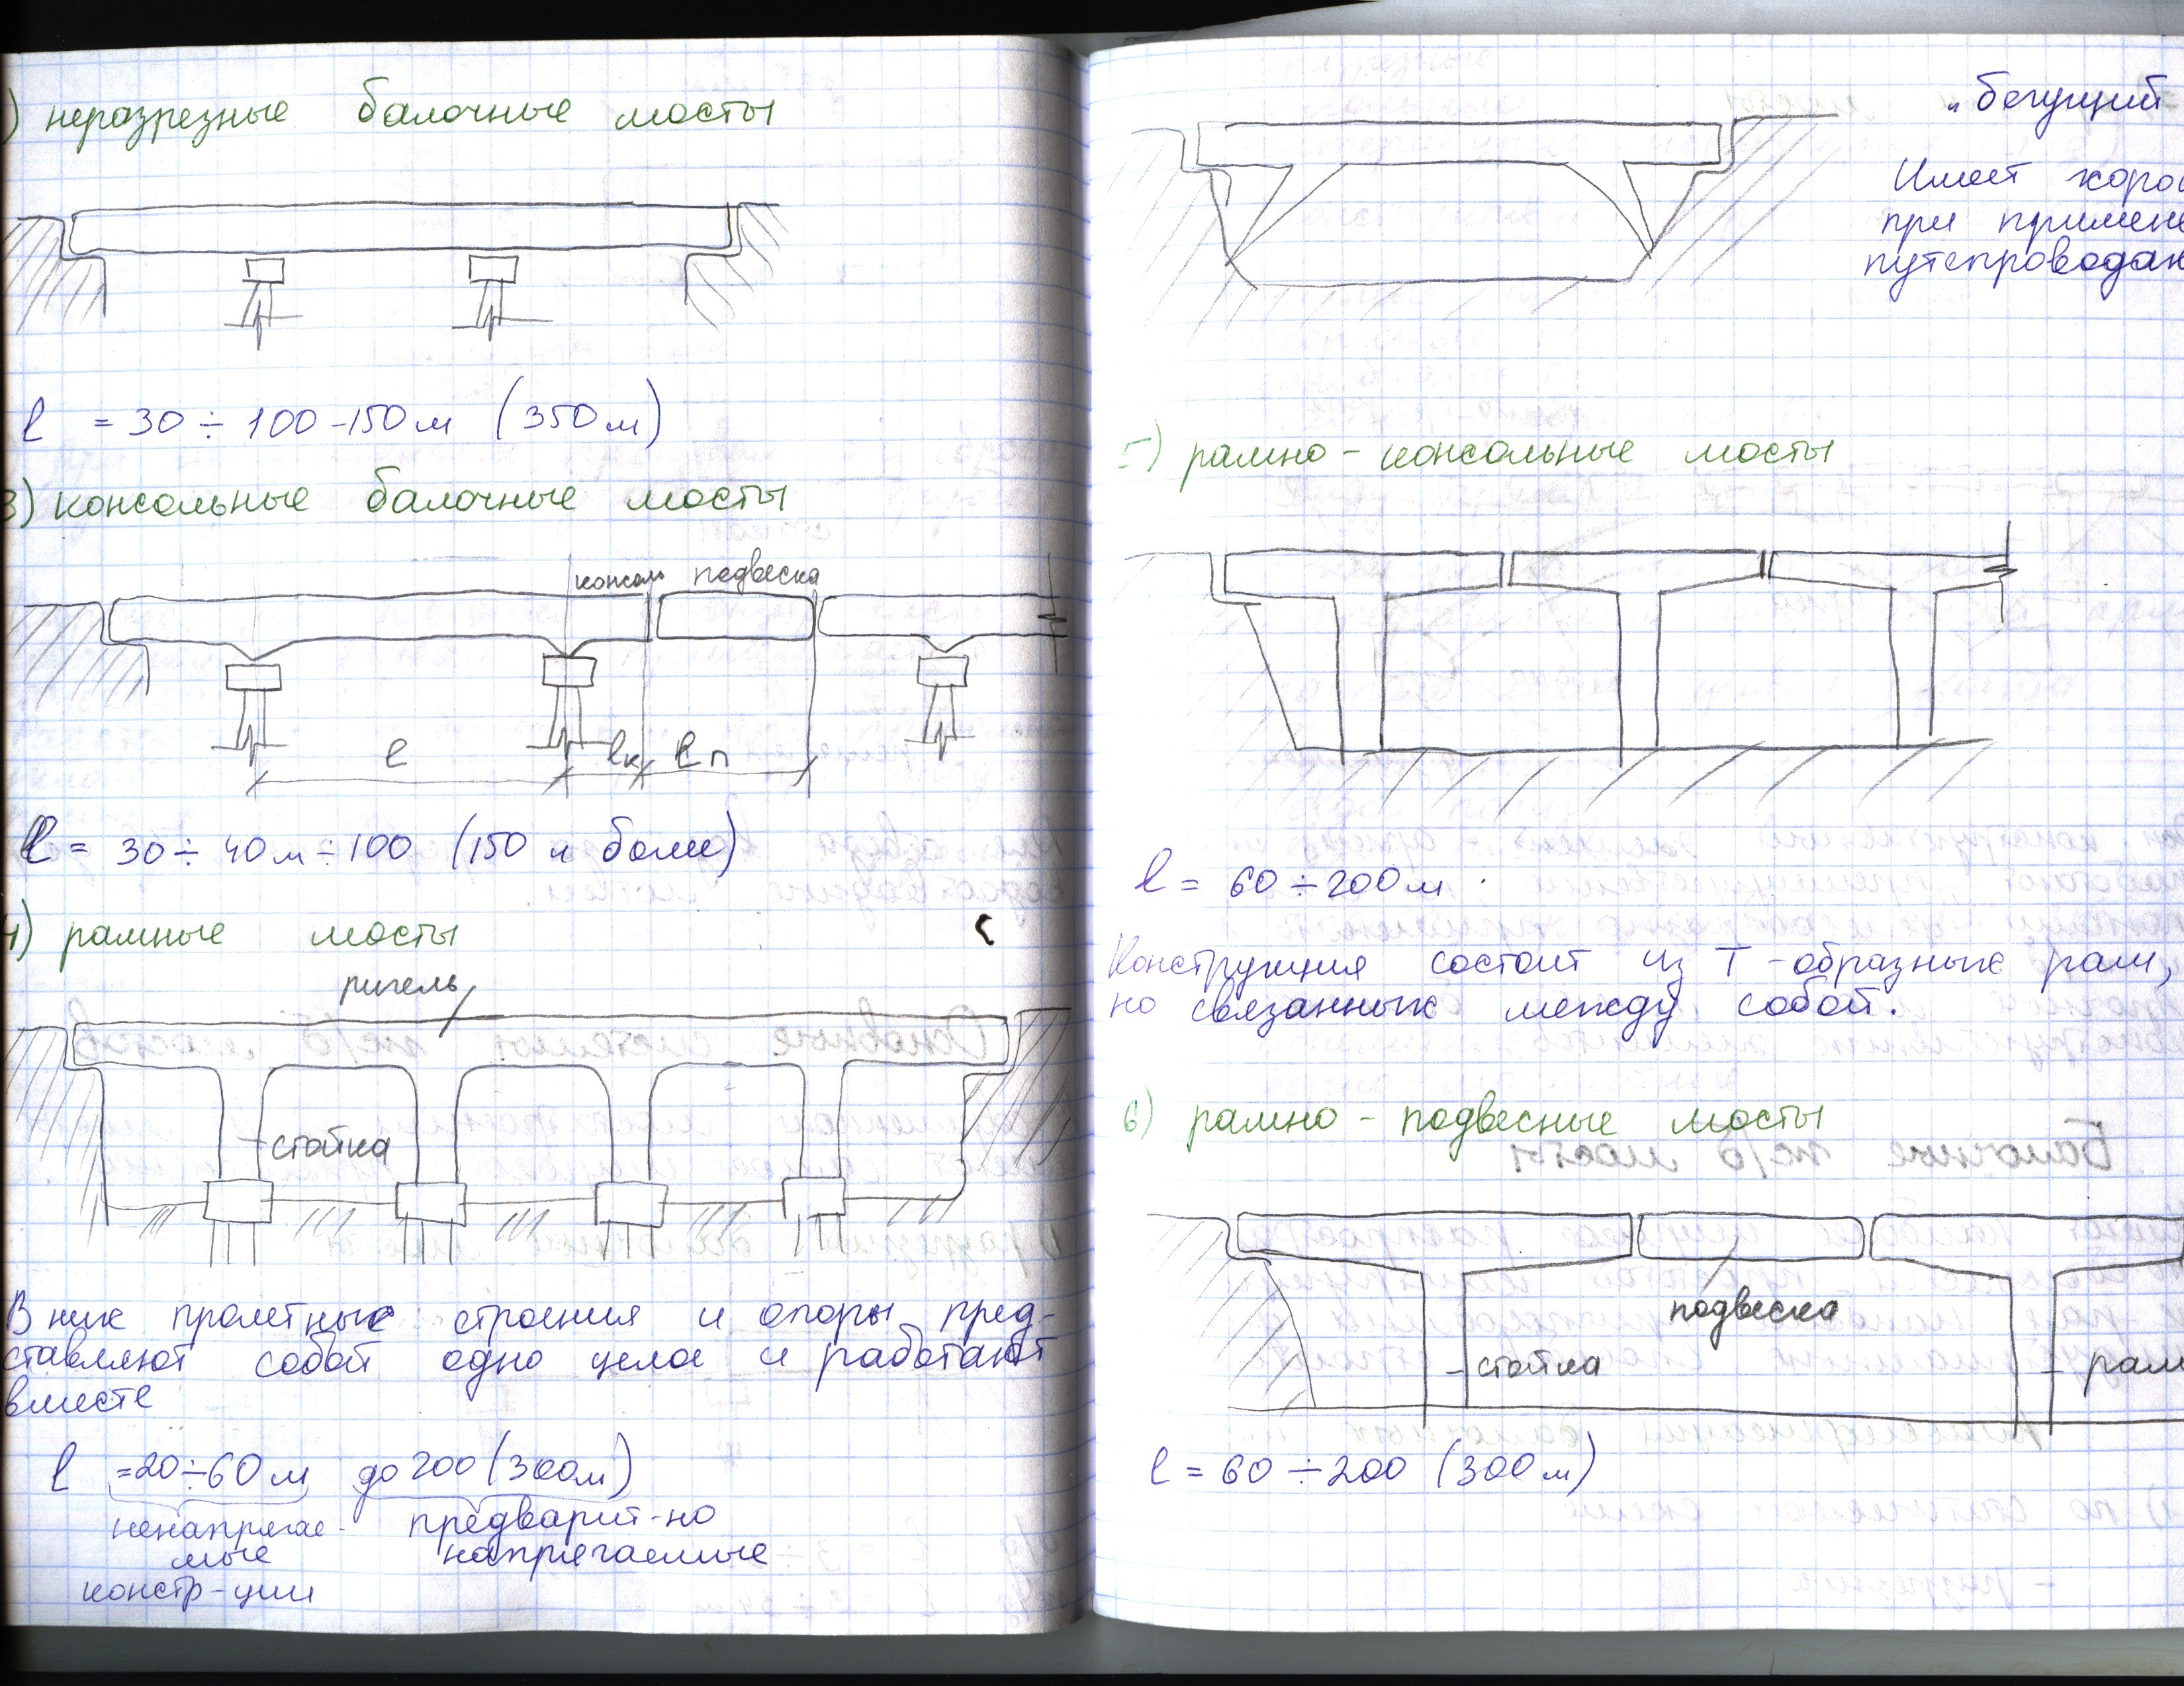 ) неразрезные балочные мосты
l = 30 ÷ 100-150 м (350 м)
3) консольные балочные мосты
консоль подвеска
l lк lп
l = 30 ÷ 40 м ÷ 100 (150 и более)
4) рамные мосты
ригель
стойка
В них пролетные строения и опоры пред-
ставляют собой одно целое и работают
вместе
l =20÷60 м до 200 (300м)
ненапрягае- предварит-но
мые напрягаемые
констр-ции
„бегущий
Имеет хорош
при примене
путепроводах
5) рамно - консольные мосты
l = 60 ÷ 200 м
Конструкция состоит из Т-образных рам,
но связанных между собой.
6) рамно - подвесные мосты
подвеска
- стойка
- рам
l = 60 ÷ 200 (300 м)